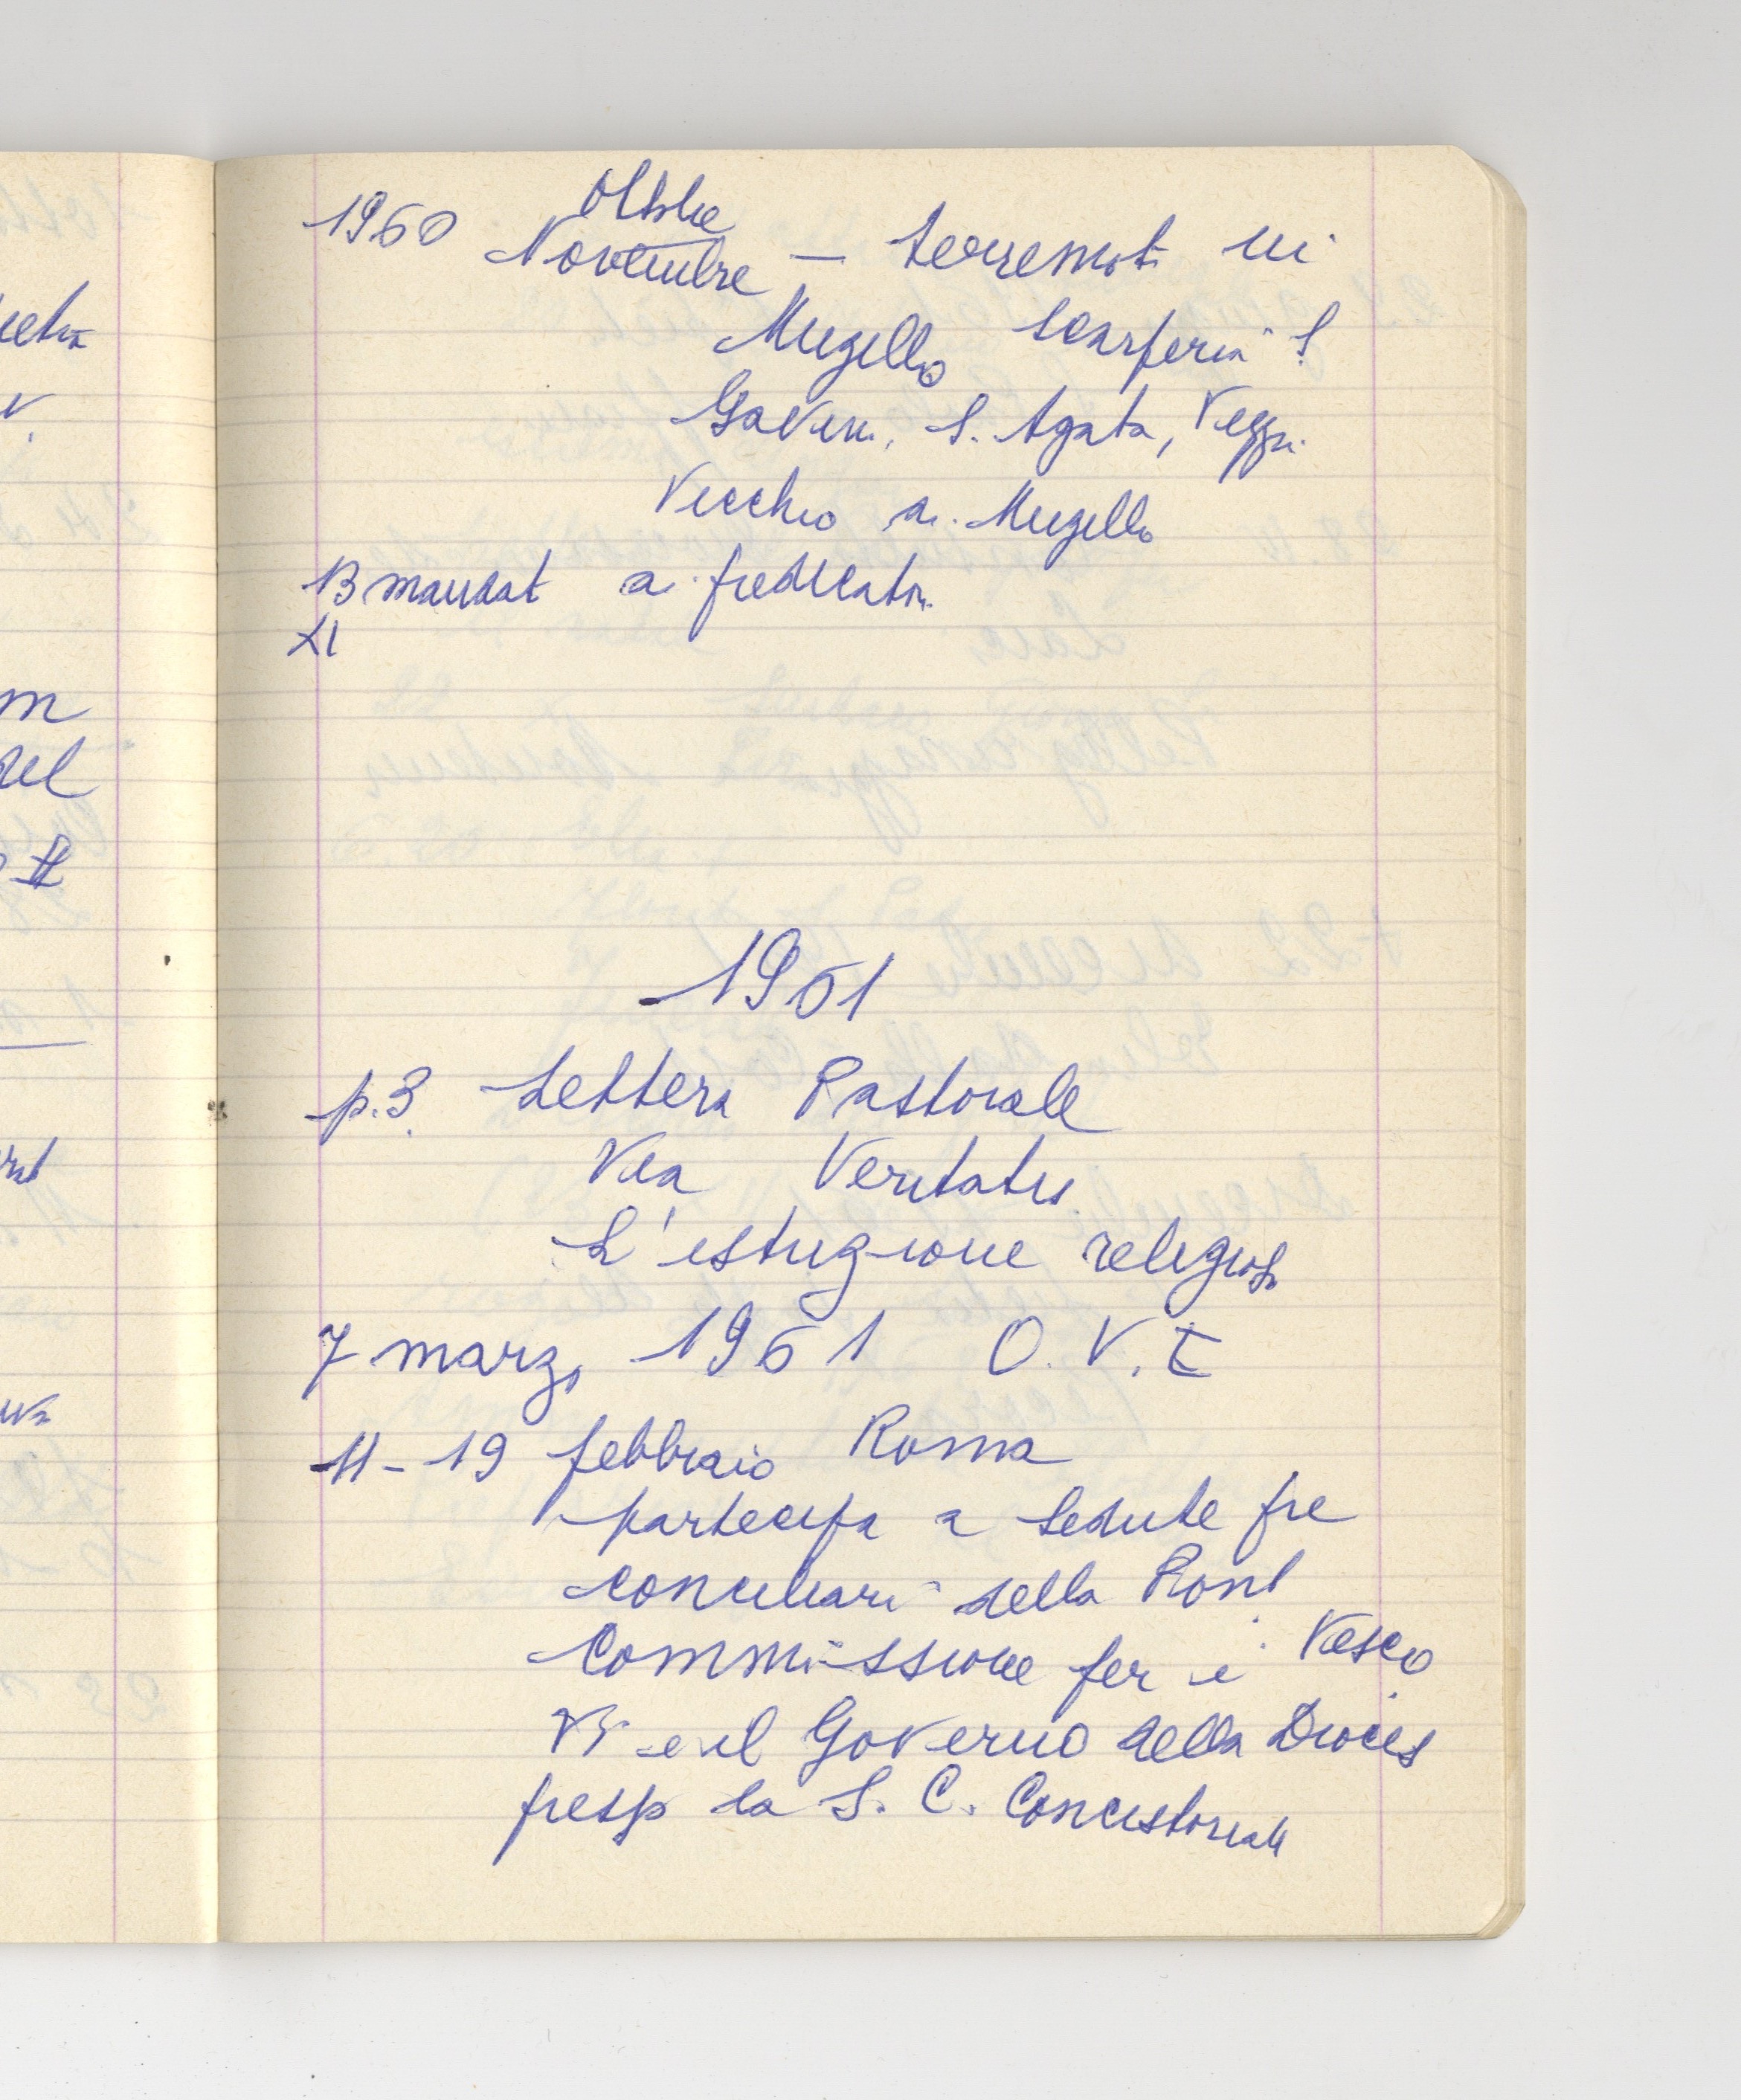 Ottobre
1960 Novembre — terremoti in
Mugello Scarperia S.
Gavino, S. Agata,
Vecchio di Mugello
13 mandato ai predicatori
XI
1961
p. 3. Lettera Pastorale
Via Veritatis
L'istruzione religiosa
7 marzo 1961 O. V. E
11-19 febbraio Roma
partecipa a sedute pre
conciliari della Pont
Commissione per i Vesco
vi e il Governo della Diocesi
presso la S. C. Concistoriale